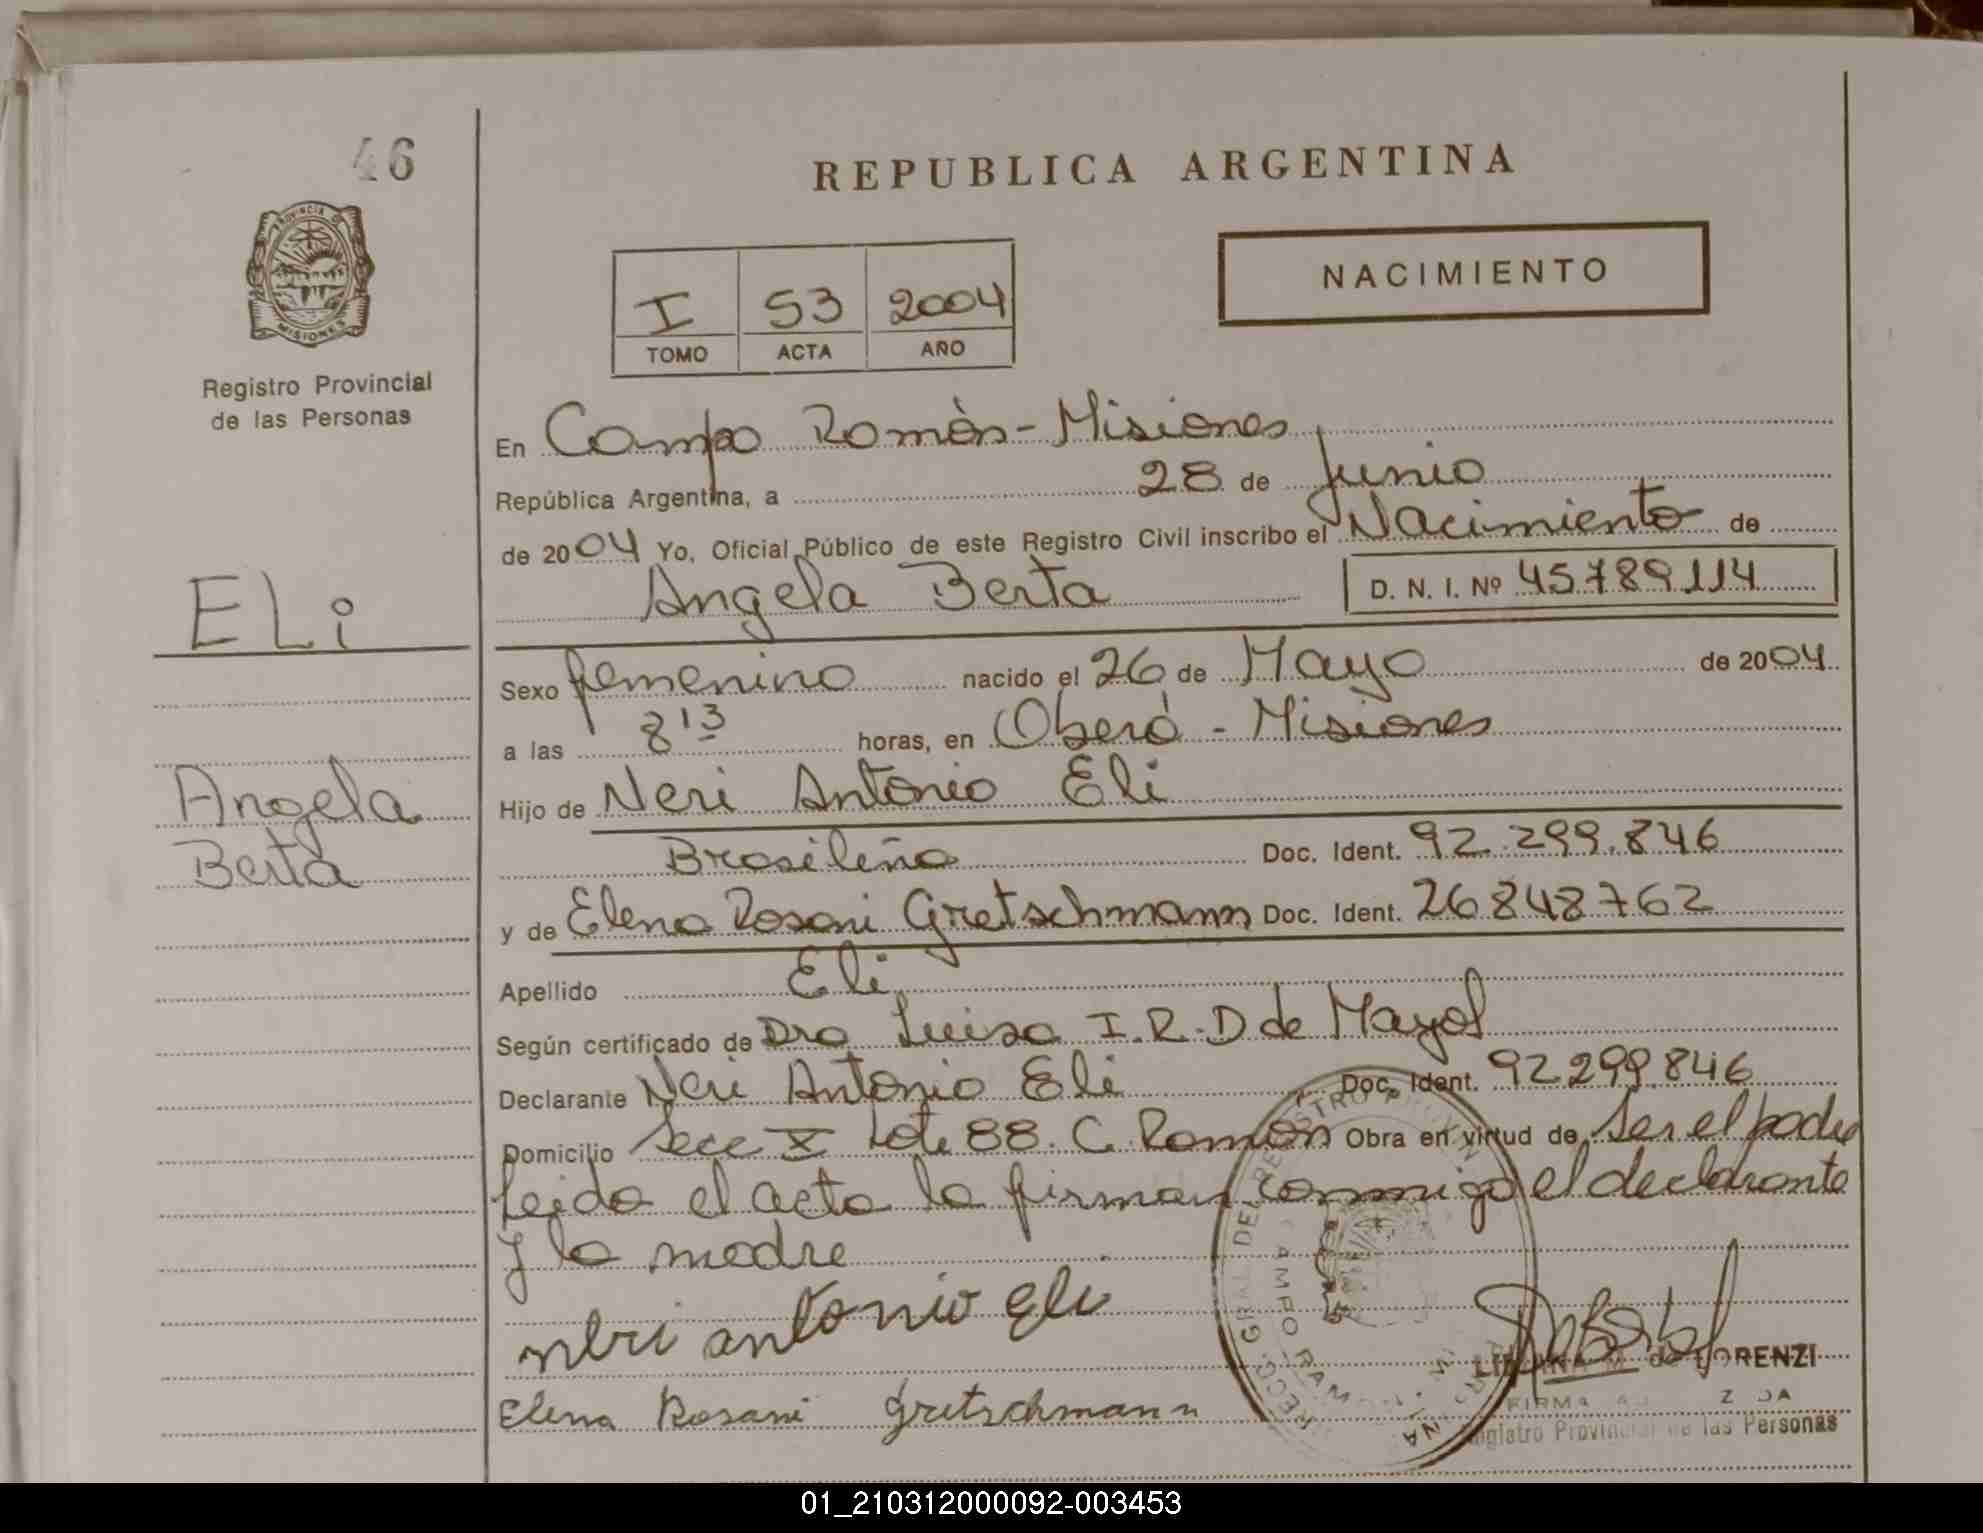 46
REPUBLICA ARGENTINA
PROVINCIA DE
MISIONES
Registro Provincial
de las Personas
NACIMIENTO
I 53 2004
TOMO ACTA AÑO
En Campo Ramón - Misiones
República Argentina, a 28 de Junio
de 2004 Yo, Oficial Público de este Registro Civil inscribo el Nacimiento de
Angela Berta D. N. I. Nº 45.789.114
ELi
Sexo femenino nacido el 26 de Mayo de 2004
a las 8 13 horas, en Oberá - Misiones
Angela
Berta
Hijo de Neri Antonio Eli
Brasileño Doc. Ident. 92.299.846
y de Elena Rosani Gretschmann Doc. Ident. 26848762
Apellido Eli
Según certificado de Dra Luisa I.R.D de Mayol
Declarante Neri Antonio Eli Doc. Ident. 92299.846
Domicilio Secc X Lote 88. C. Ramón Obra en virtud de Ser el padre
Leida el acta la firman conmigo el declarante
y la madre
neri antonio eli
Elena Rosani gretschmann
de LORENZI
FIRMA
Registro Provincial de las Personas
01_210312000092-003453